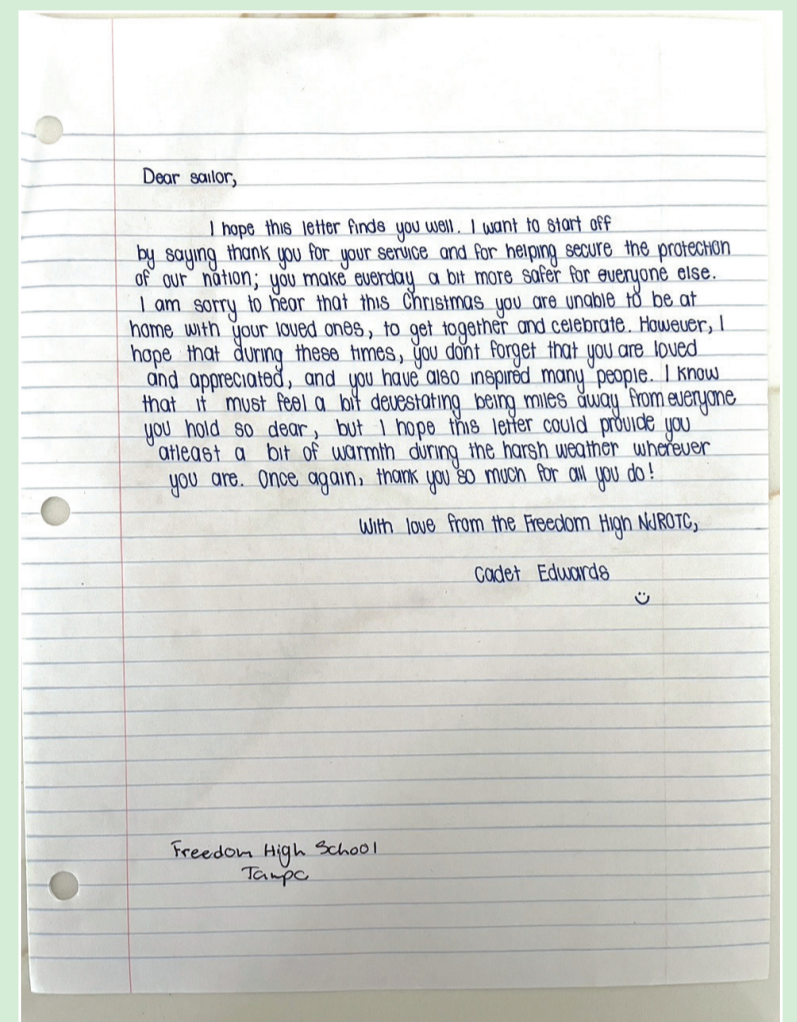 Dear sailor,
I hope this letter finds you well. I want to start off
by saying thank you for your service and for helping secure the protection
of our nation; you make everday a bit more safer for everyone else.
I am sorry to hear that this Christmas you are unable to be at
home with your loved ones, to get together and celebrate. However, I
hope that during these times, you dont forget that you are loved
and appreciated, and you have also inspired many people. I know
that it must feel a bit devestating being miles away from everyone
you hold so dear, but I hope this letter could provide you
atleast a bit of warmth during the harsh weather wherever
you are. Once again, thank you so much for all you do!
With love from the Freedom High NJROTC,
Cadet Edwards
Freedom High School
Tampa